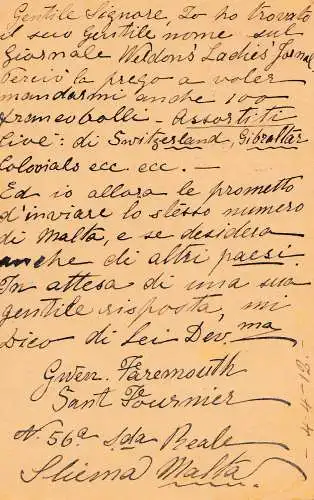 Gentile Signore, Io ho trovato
il suo gentile nome sul
giornale Weldon's Ladies' Jornal
percivi la prego a voler
mandarmi anche 100
francobolli - Assortiti
cive: di Switzerland, Gibraltar
Colovials ecc. ecc. -
Ed io allora le prometto
d'inviare lo stesso numero
di Malta, e se desidera
anche di altri paesi.
In attesa di una sua
gentile risposta, mi
Dico di Lei Dev.ma
Gwen. Faremouth
Sant Fournier
N. 56a Sda Reale
Sliema Malta